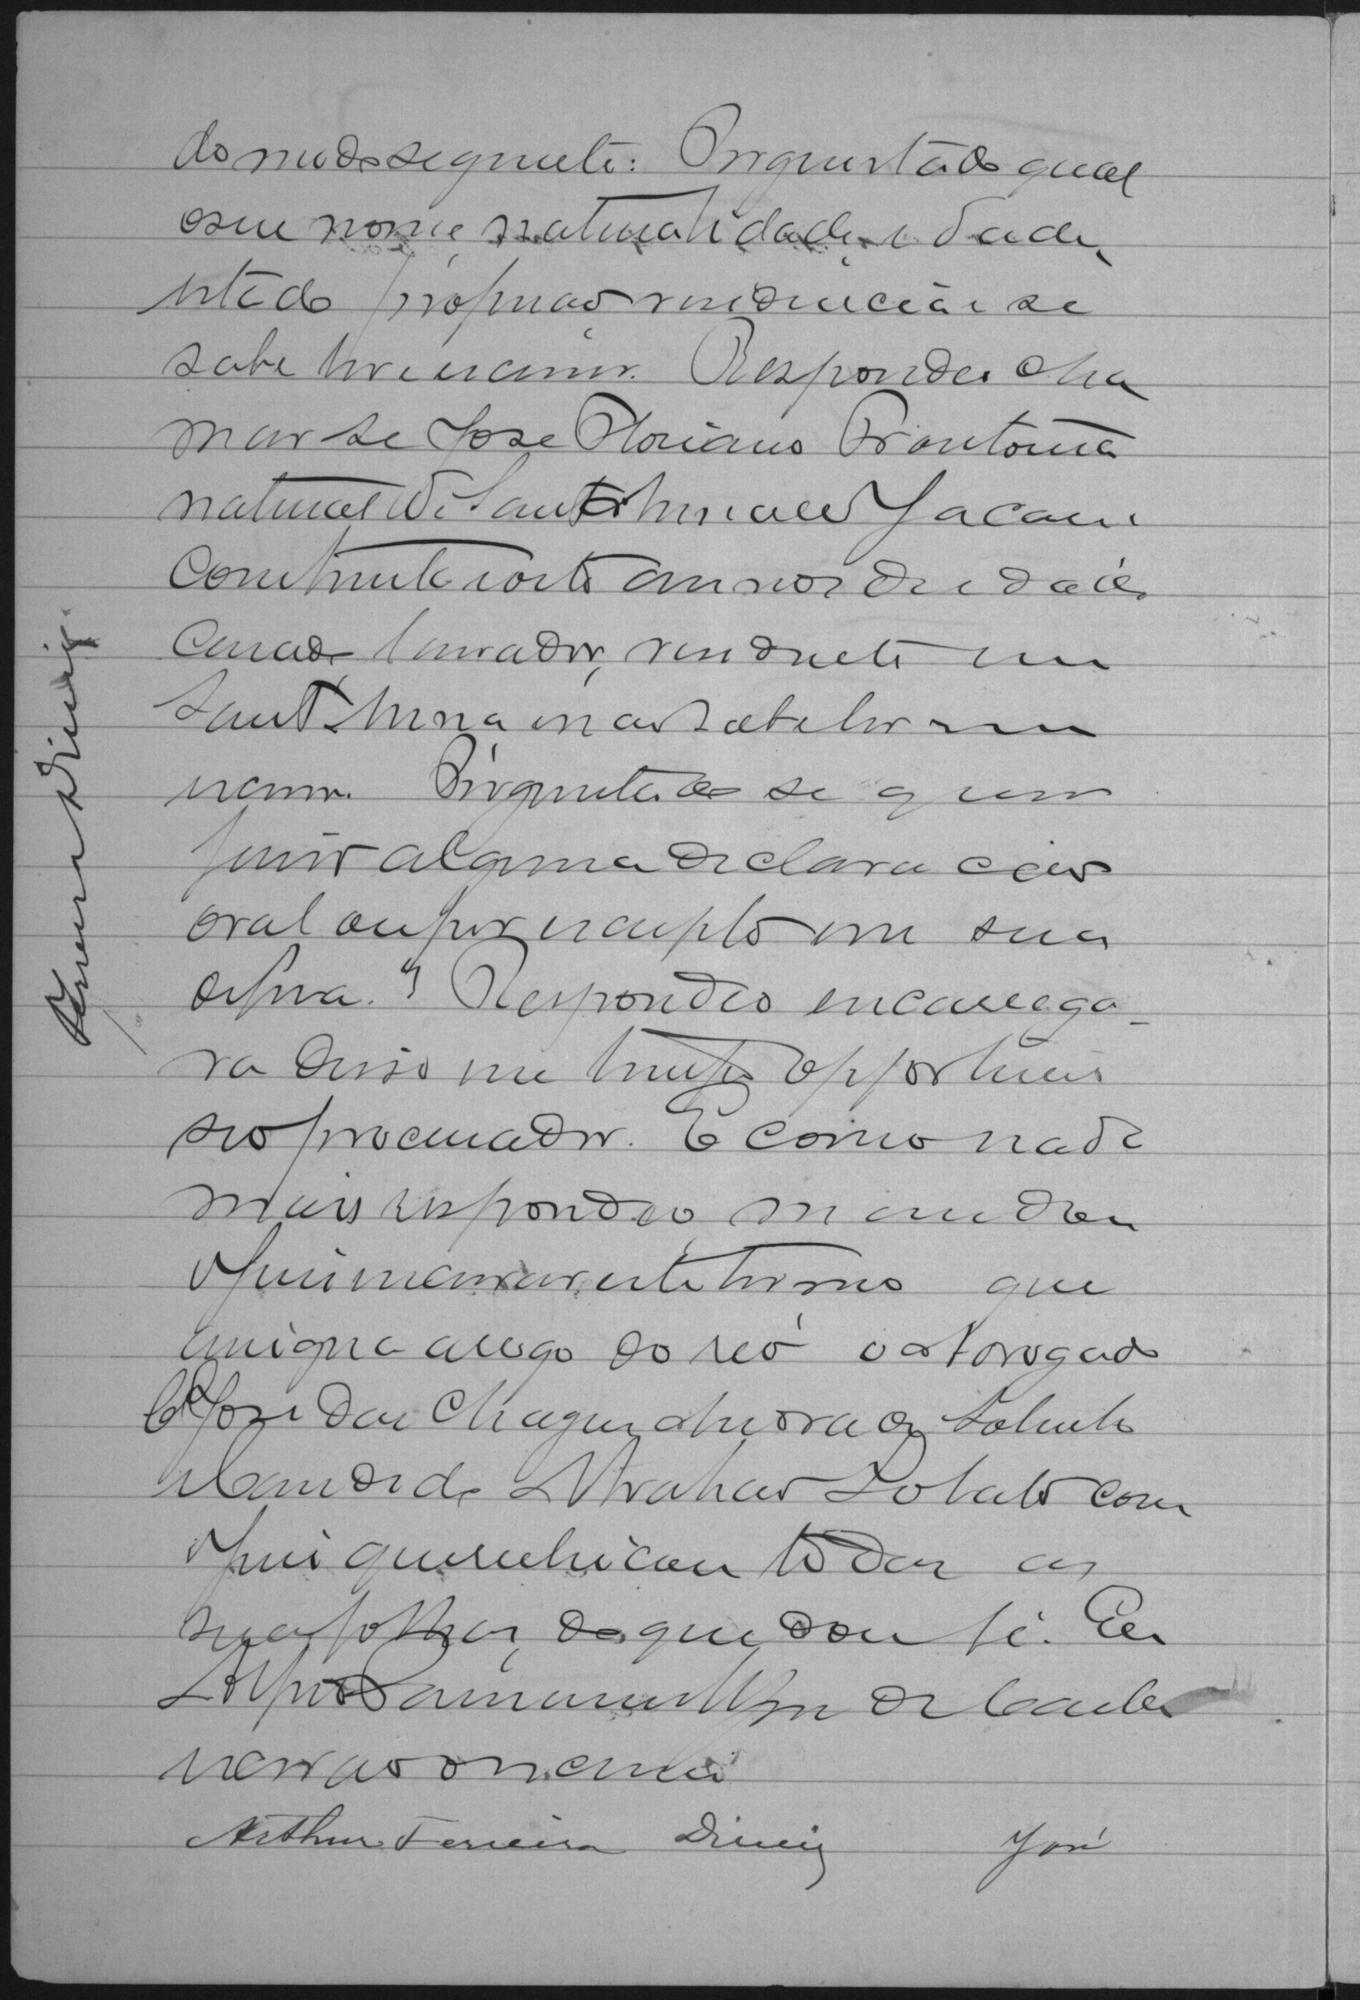 do modo seguinte: Perguntado qual
o seu nome, naturalidade, idade,
estado, profissão residencia e se
sabe ler e escrever. Respondeu cha
mar se José Floriano
natural de Sant'Anna do Jacaré
com trinta e oito annos de idade
casado, lavrador, residente em
Sant'Anna e não sabe ler nem
escrever. Perguntado se quer
fazer alguma declaração
oral ou por escripto em sua
defesa? Respondeo encarrega-
ra disso em tempo opportuno
seo procurador. E como nada
mais respondeo, mandou
o juiz lavrar este termo que
assigna a rogo do reo o advogado
José das Chagas Andrade Sobrinho
e Candido Abrahão Lobato com
o juiz que rubricou todas as
suas folhas, do que dou fé. Eu
de
escrivão o escrevi
Arthur Ferreira Diniz José
Ferreira Diniz